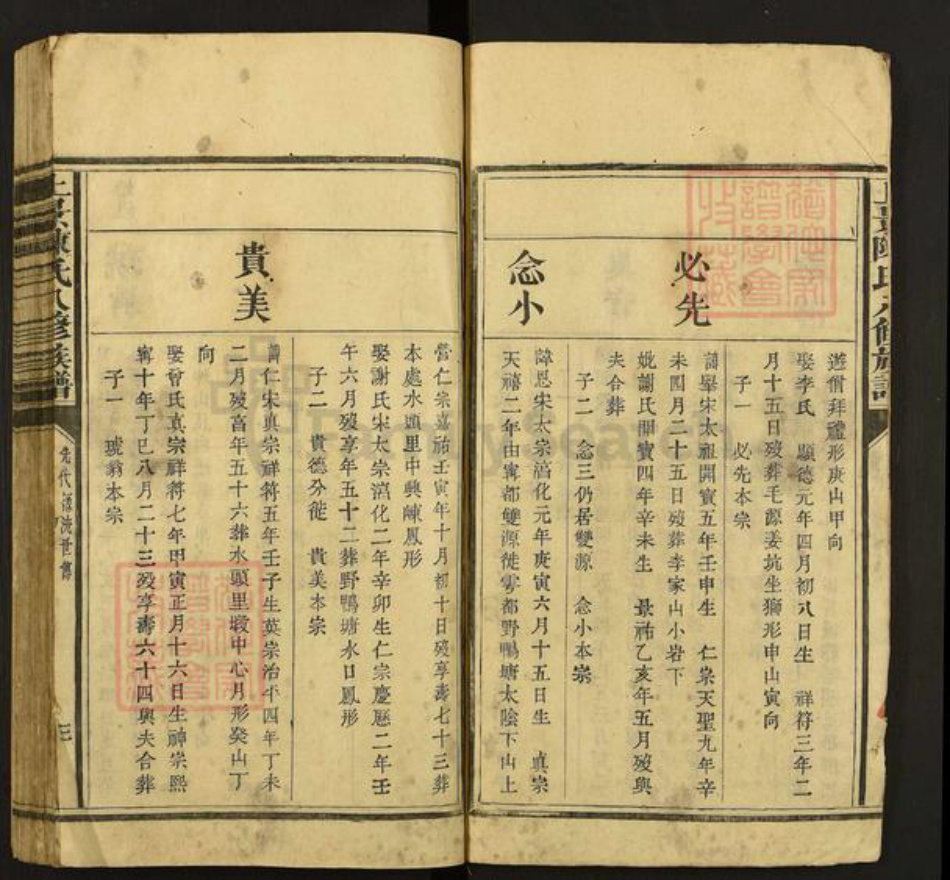 上 陳氏八修族譜
遊僧拜禮形庚山甲向
娶李氏 顯德元年四月初八日生 祥符三年二
月十五日歿葬毛源姜坑坐獅形申山寅向
子一 必先本宗
必先
諱舉宋太祖開寶五年壬申生 仁宗天聖九年辛
未四月二十五日歿葬李家山小岩下
妣謝氏開寶四年辛未生 景祐乙亥年五月歿與
夫合葬
子二 念三仍居雙源 念小本宗
念小
諱恩宋太宗淳化元年庚寅六月十五日生 真宗
天禧二年由寗都雙源徙雩都野鴨塘太陰下山上
營仁宗嘉祐壬寅年十月初十日歿享壽七十三葬
本處水頭里中興 鳳形
娶謝氏宋太宗淳化二年辛卯生仁宗慶曆二年壬
午六月歿享年五十二葬野鴨塘水口鳳形
子二 貴德分徙 貴美本宗
貴美
諱仁宋真宗祥符五年壬子生英宗治平四年丁未
二月歿高年五十六葬水頭里墩中心月形癸山丁
向
娶曾氏真宗祥符七年甲寅正月十六日生神宗熙
寗十年丁巳八月二十三歿享壽六十四與夫合葬
子一 琥翁本宗
上 陳氏八修族譜
先代源流世傳
三